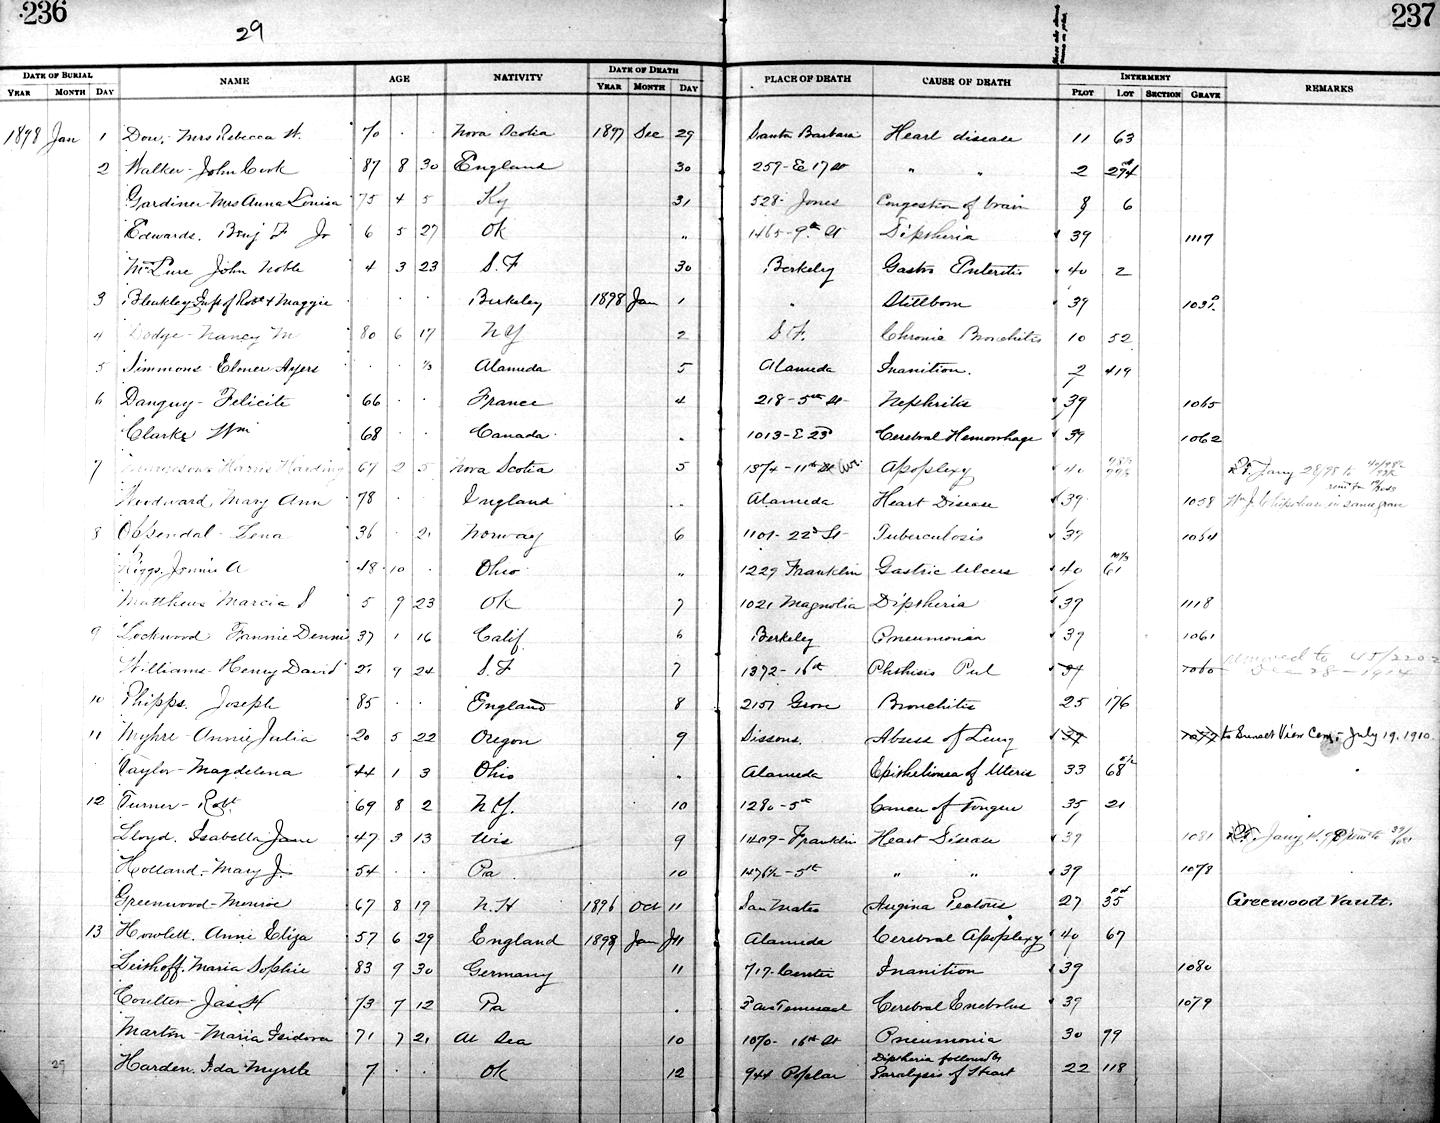 236
29
237
DATE OF BURIAL NAME AGE NATIVITY DATE OF DEATH PLACE OF DEATH CAUSE OF DEATH INTERMENT REMARKS
YEAR MONTH DAY YEAR MONTH DAY PLOT LOT SECTION GRAVE
1898 Jan 1 Dow, Mrs Rebecca W. 70 . . Nova Scotia 1897 Dec 29 Santa Barbara Heart disease 11 63
2 Walker - John Cook 87 8 30 England 30 259 - E 17 St " " 2 294
Gardiner - Mrs Anna Louisa 75 4 5 Ky 31 528 - Jones Congestion of brain 8 6
Edwards. Benj F Jr 6 5 27 Ok " 1465 - 9th St Diptheria 39 1117
McLure John Noble 4 3 23 S.F 30 Berkeley Gastro Enteritis 40 2
3 Bleakley Inf of Robt & Maggie . . . Berkeley 1898 Jan 1 " Stillborn 39 1031
4 Dodge - Nancy M 80 6 17 N Y 2 S.F. Chronic Bronchitis 10 52
5 Simmons Elmer Ayers . . ⅓ Alameda 5 Alameda Inanition. 2 419
6 Danguy - Felicite 66 . . France 4 218 - 5th St Nephritis 39 1065
Clarke Wm 68 . . Canada . 1013 - E 23d Cerebral Hemorrhage 39 1062
7 Harris Harding 67 2 5 Nova Scotia 5 1374 - 11th Ave. Apoplexy 40 Jany 28/98 to
Woodward, Mary Ann 78 England .. Alameda Heart Disease 39 1058 Wm J. in same grave
8 Obsendal - Lena 36 . 21 Norway 6 1101 - 22d St Tuberculosis 39 1054
Riggs, Jennie A 48 10 . Ohio " 1229 Franklin Gastric Ulcers 40 61
Matthews Marcia S 5 9 23 Ok 7 1021 Magnolia Diptheria 39 1118
9 Lockwood Fannie Dennis 37 1 16 Calif 6 Berkeley Pneumonia 39 1061
Williams Henry David 21 9 24 S.F 7 1392 - 16th Phthisis Pul 39 1060 removed to 45/2202
Dec 28 - 1914
10 Phipps. Joseph 85 . . England 8 2151 Grove Bronchitis 25 176
11 Myhre - Annie Julia 20 5 22 Oregon 9 Sissons. Absess of Lung 39 to Sunset View Cem - July 19. 1910
Taylor - Magdelena 44 1 3 Ohio . Alameda Epithelioma of Uteris 33 68
12 Turner - Robt 69 8 2 N.Y. 10 1280 - 5th Cancer of Tongue 35 21
Lloyd. Isabella Jane 47 3 13 Wis 9 1409 - Franklin Heart Disease 39 1081 Jany 14. 98
Holland - Mary J. 54 . . Pa 10 1476½ - 5th " " 39 1078
Greenwood - Monroe 67 8 19 N.H 1896 Oct 11 San Mateo Angina Pectoris 27 35 Greenwood Vault.
13 Howlett. Annie Eliza 57 6 29 England 1898 Jan 11 Alameda Cerebral Apoplexy 40 67
Leishoff. Maria Sophie 83 9 30 Germany 11 717 - Center Inanition 39 1080
Coulter - Jas H 73 7 12 Pa . Cerebral Embolus 39 1079
Martin - Maria Isidora 71 7 21 At Sea 10 1070 - 16th St Pneumonia 30 99
29 Harden. Ida Myrtle 7 . . Ok 12 944 Poplar Diptheria followed by
Paralysis of Heart 22 118